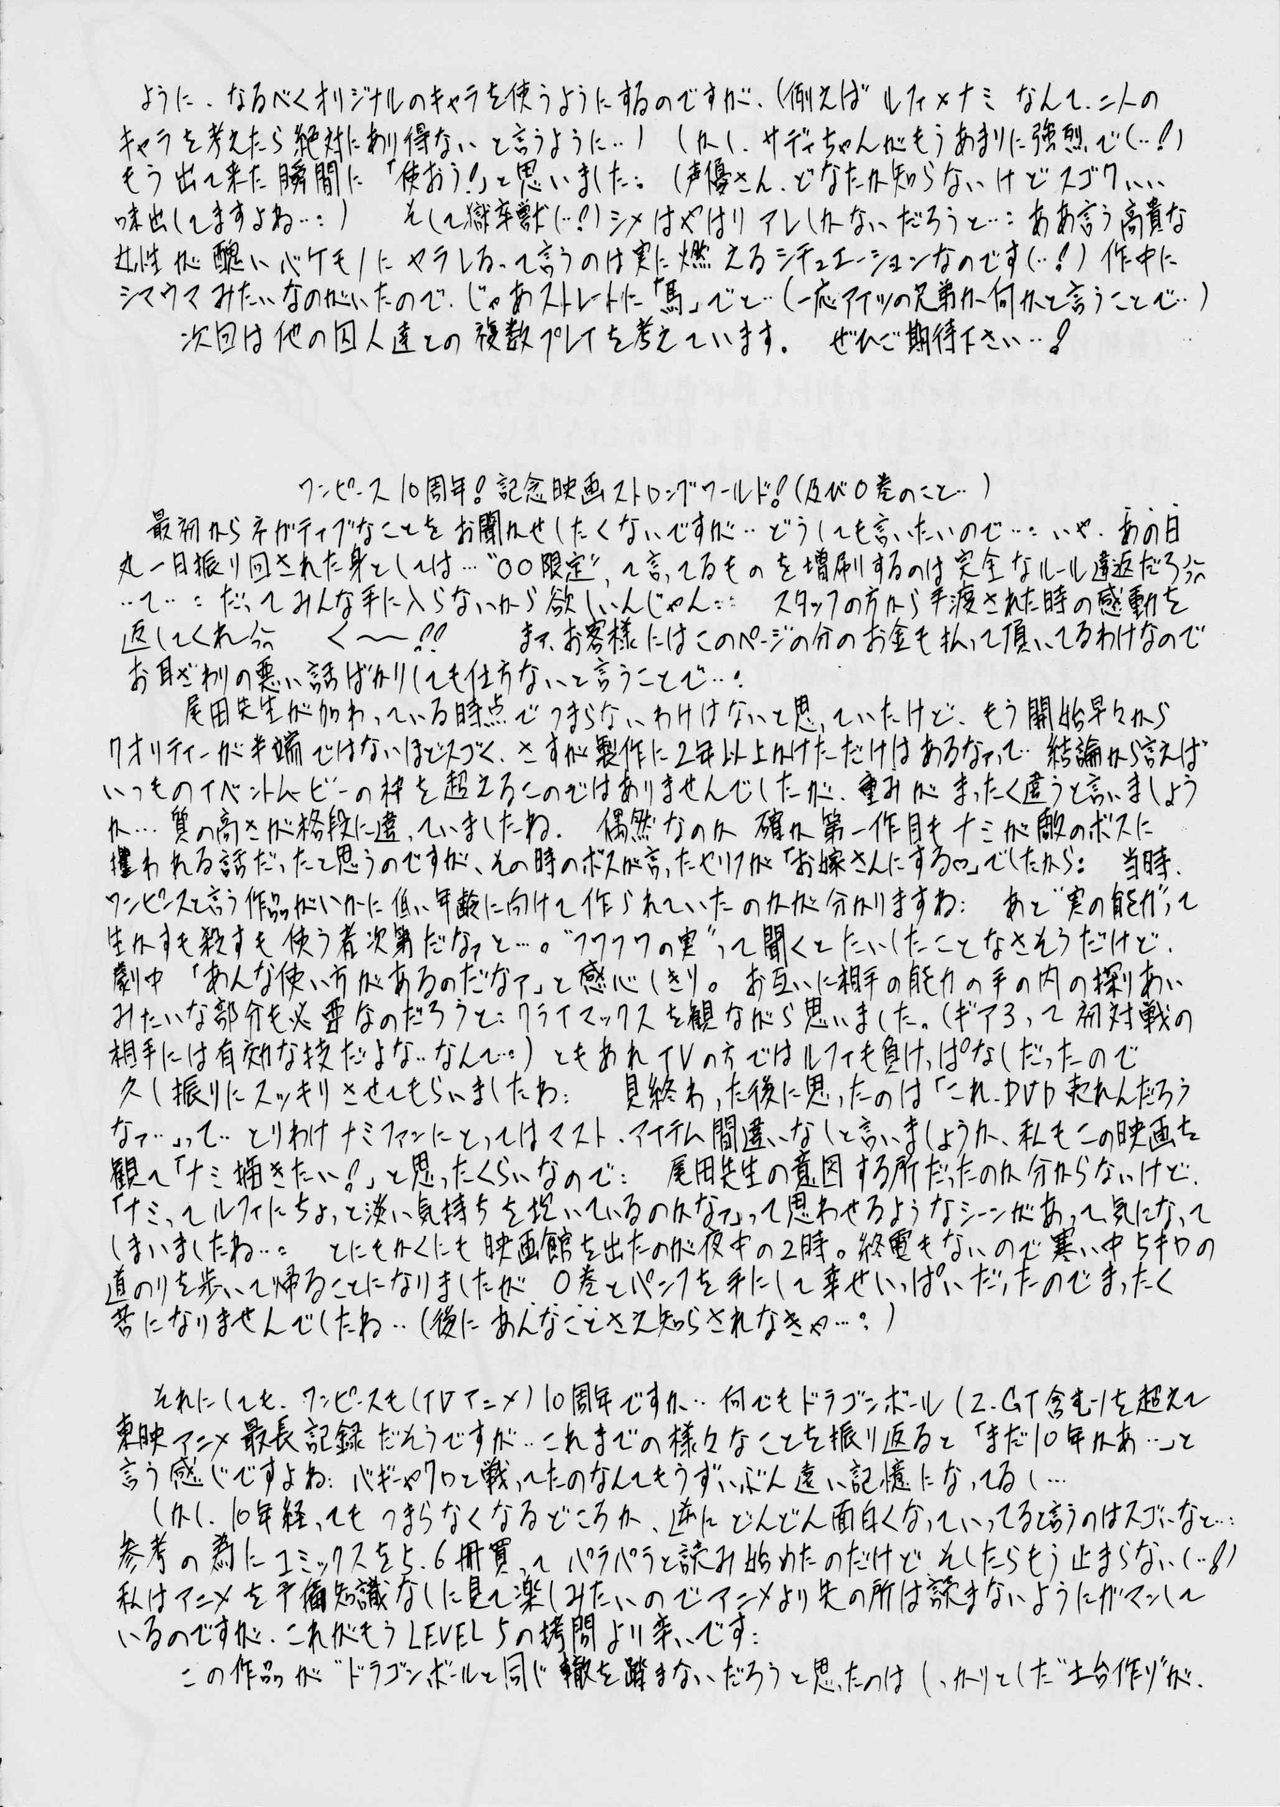 ように、なるべくオリジナルのキャラを使うようにするのですが、(例えば ルフィ×ナミ なんて、二人の
キャラを考えたら絶対にあり得ない と言うように…) しかし、サディちゃんがもうあまりに強烈でし(…!)
もう出て来た瞬間に「使おう!」と思いました: (声優さん、どなたか知らないけどスゴクいい
味出してますよね…:) そして獄卒獣(…!)シメはやはり アレしかないだろうと…: ああ言う高貴な
女性が醜いバケモノにヤラレるって言うのは実に燃えるシチュエーションなのです(…!) 作中に
シマウマみたいなのがいたので、じゃあストレートに「馬」でと…(一応アイツの兄弟か何かと言うことで…)
次回は他の囚人達との複数プレイを考えています。 ぜひご期待下さい…!
ワンピース10周年!記念映画ストロングワールド!(及び0巻のこと…)
最初からネガティブなことをお聞かせしたくないですが… どうしても言いたいので…: いや、あの日
丸一日振り回された身としては…"○○限定"って言ってるものを増刷するのは完全なルール違反だろ
…て…: だってみんな手に入らないから欲しいんじゃん:: スタッフの方から手渡された時の感動を
返してくれ く〜〜!! まァ、お客様にはこのページの分のお金も払って頂いてるわけなので
お耳ざわりの悪い話ばかりしても仕方ないと言うことで…:
尾田先生が加わっている時点でつまらないわけはないと思っていたけど、もう開始早々から
クオリティーが半端ではないほどスゴく、さすが製作に2年以上かけただけはあるなァって… 結論から言えば
いつものイベントムービーの枠を超えるものではありませんでしたが、重みがまったく違うと言いましょう
か… 質の高さが格段に違っていましたね. 偶然なのか 確か第一作目もナミが敵のボスに
攫われる話だったと思うのですが、その時のボスが言ったセリフが「お嫁さんにする♡」でしたから: 当時、
ワンピースと言う作品がいかに低い年齢に向けて作られていたのかが分かりますね: あと"実の能力"って
生かすも殺すも使う者次第だなァと…。"フワフワの実"って聞くとたいしたことなさそうだけど、
劇中「あんな使い方があるのだなァ」と感心しきり。 お互いに相手の能力の手の内の探りあい
みたいな部分も必要なのだろうと: クライマックスを観ながら思いました。(ギア3って初対戦の
相手には有効な技だよな…なんて:) ともあれTVの方ではルフィも負けっぱなしだったので
久し振りにスッキリさせてもらいましたね: 見終わった後に思ったのは「これ、DVD売れんだろう
なァ…」って… とりわけナミファンにとってはマスト・アイテム間違いなしと言いましょうか、私もこの映画を
観て「ナミ描きたい!」と思ったくらいなので: 尾田先生の意図する所だったのか分からないけど、
「ナミってルフィにちょっと淡い気持ちを抱いているのかなァ」って思わせるようなシーンがあって、気になって
しまいましたね…: とにもかくにも映画館を出たのが夜中の2時。終電もないので寒い中5キロの
道のりを歩いて帰ることになりましたが、0巻とパンフを手にして幸せいっぱいだったのでまったく
苦になりませんでしたね…(後にあんなことさえ知らされなきゃ…:)
それにしても、ワンピースも(TVアニメ)10周年ですか… 何でもドラゴンボール(Z.GT含む)を超えて
東映アニメ最長記録だそうですが…これまでの様々なことを振り返ると「まだ10年かぁ…」と
言う感じですよね: バギーやクロと戦ってたのなんてもうずいぶん遠い記憶になってるし…
しかし、10年経ってもつまらなくなるどころか、逆にどんどん面白くなっていってると言うのはスゴいなと…:
参考の為にコミックスを5.6冊買ってパラパラと読み始めたのだけど、そしたらもう止まらない(…!)
私はアニメを予備知識なしに見て楽しみたいのでアニメより先の所は読まないようにガマンして
いるのですが、これがもうLEVEL5の拷問より辛いです:
この作品が"ドラゴンボールと同じ轍を踏まないだろうと思ったのはしっかりとした"土台作り"が、